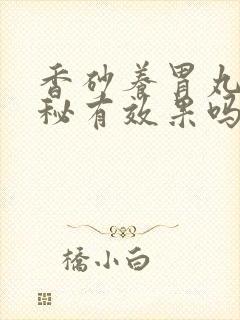 香砂养胃丸
秘有效果吗
橋小白